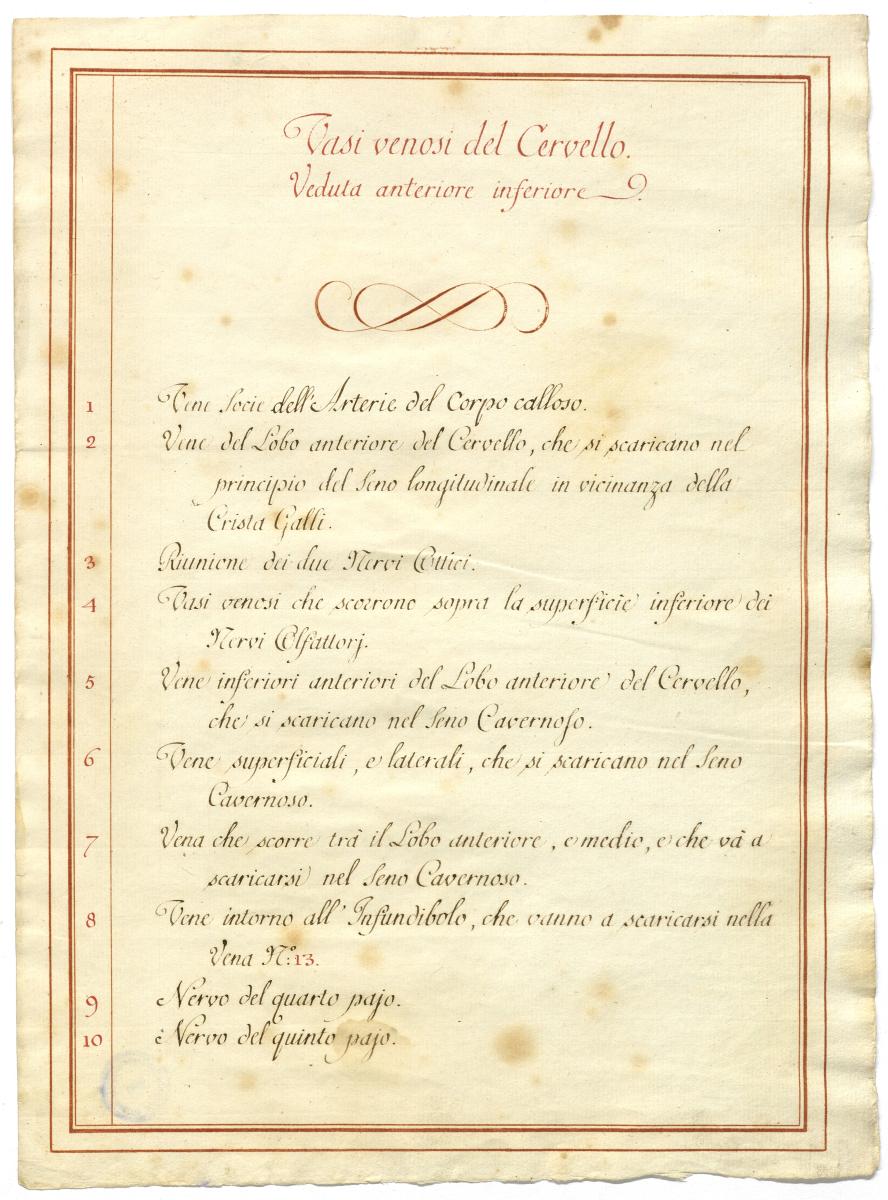 Vasi venosi del Cervello.
Veduta anteriore inferiore.
1 Vene Socie dell'Arterie del Corpo calloso.
2 Vene del Lobo anteriore del Cervello, che si scaricano nel
principio del Seno longitudinale in vicinanza della
Crista Galli.
3 Riunione dei due Nervi Ottici.
4 Vasi venosi che scorrono sopra la superficie inferiore dei
Nervi Olfattorj.
5 Vene inferiori anteriori del Lobo anteriore del Cervello,
che si scaricano nel Seno Cavernoso.
6 Vene superficiali, e laterali, che si scaricano nel Seno
Cavernoso.
7 Vena che scorre trà il Lobo anteriore, e medio, e che và a
scaricarsi nel Seno Cavernoso.
8 Vene intorno all'Infundibolo, che vanno a scaricarsi nella
Vena N.º 13.
9 Nervo del quarto pajo.
10 Nervo del quinto pajo.